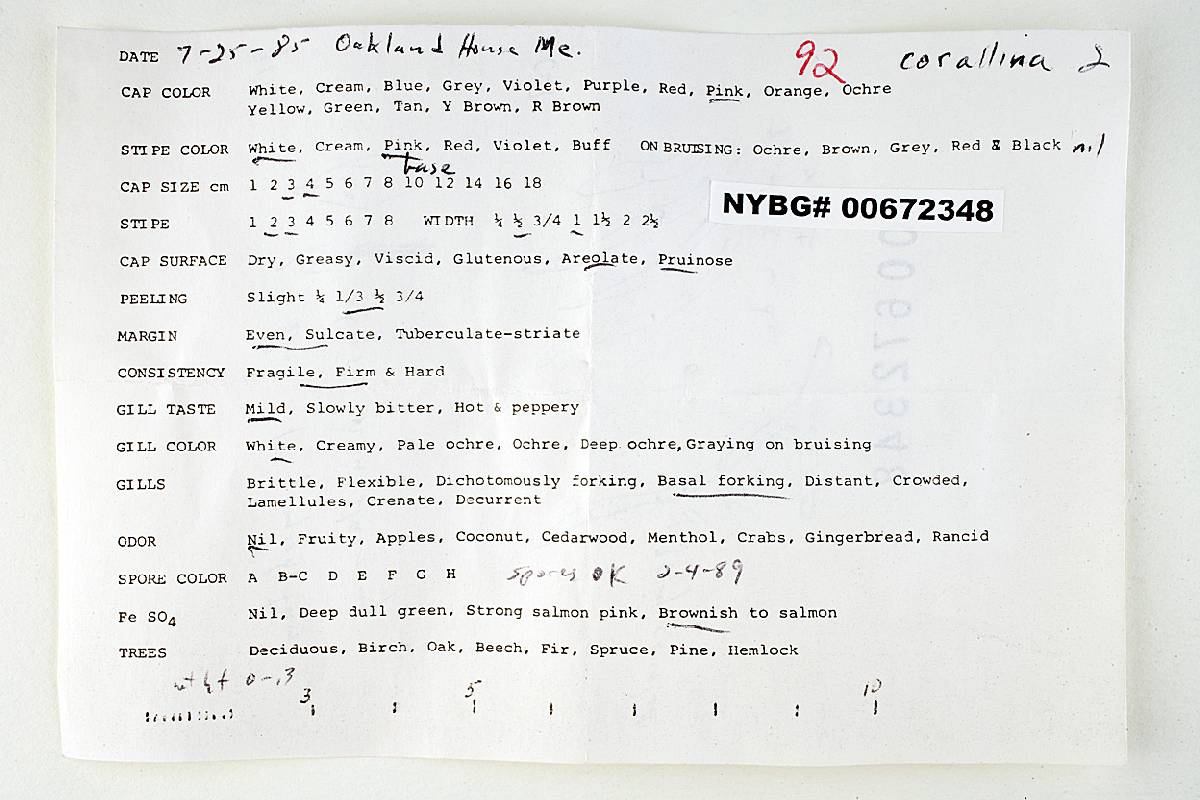 DATE 7-25-85 Oakland House Me. 92 corallina 2
CAP COLOR White, Cream, Blue, Grey, Violet, Purple, Red, Pink, Orange, Ochre
Yellow, Green, Tan, Y Brown, R Brown
STIPE COLOR White, Cream, Pink, Red, Violet, Buff ON BRUISING: Ochre, Brown, Grey, Red & Black nil
base
CAP SIZE cm 1 2 3 4 5 6 7 8 10 12 14 16 18
NYBG# 00672348
STIPE 1 2 3 4 5 6 7 8 WIDTH ¼ ½ 3/4 1 1½ 2 2½
CAP SURFACE Dry, Greasy, Viscid, Glutenous, Areolate, Pruinose
PEELING Slight ¼ 1/3 ½ 3/4
MARGIN Even, Sulcate, Tuberculate-striate
CONSISTENCY Fragile, Firm & Hard
GILL TASTE Mild, Slowly bitter, Hot & peppery
GILL COLOR White, Creamy, Pale ochre, Ochre, Deep ochre, Graying on bruising
GILLS Brittle, Flexible, Dichotomously forking, Basal forking, Distant, Crowded,
Lamellules, Crenate, Decurrent
ODOR Nil, Fruity, Apples, Coconut, Cedarwood, Menthol, Crabs, Gingerbread, Rancid
SPORE COLOR A B-C D E F G H Spores OK 2-4-89
Fe SO4 Nil, Deep dull green, Strong salmon pink, Brownish to salmon
TREES Deciduous, Birch, Oak, Beech, Fir, Spruce, Pine, Hemlock
0-.3
3 5 10